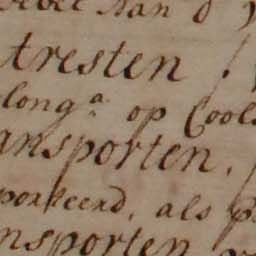 tresten.
long.ª op Cool
ansporten.
porteerd, als
nsporten